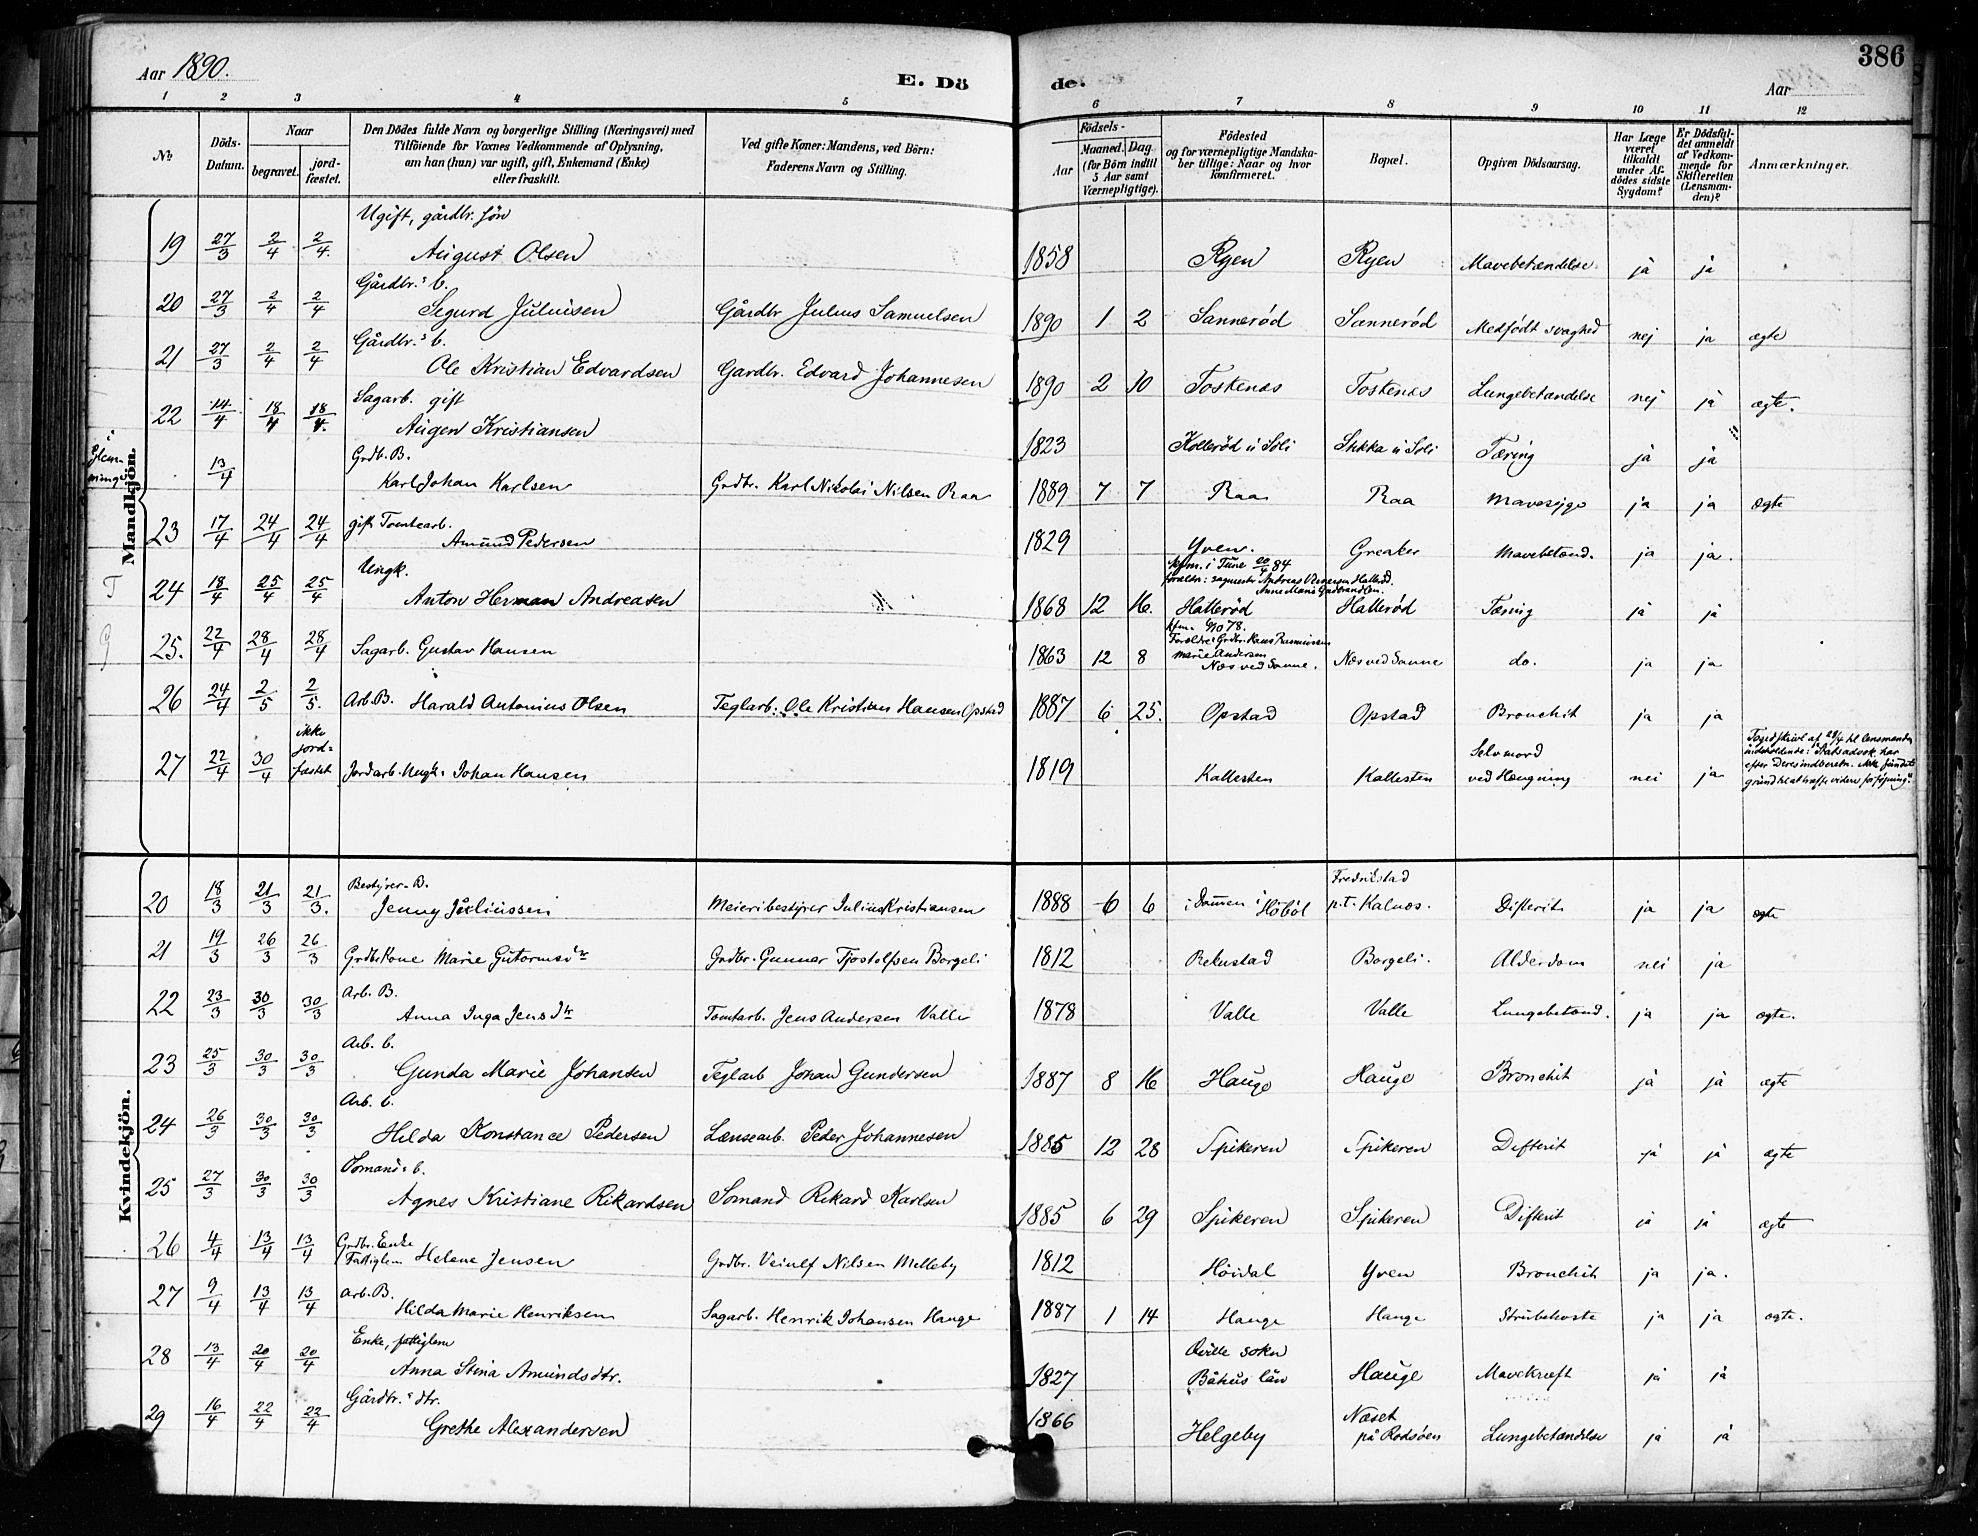 386
Aar 1890.
E. Dö de.
Aar
1 2 3 4 5 6 7 8 9 10 11 12
No.
Döds-Datum.
Naar
begravet.
jord-fæstet.
Den Dödes fulde Navn og borgerlige Stilling (Næringsvei) med
Tilföiende for Voxnes Vedkommende af Oplysning,
om han (hun) var ugift, gift, Enkemand (Enke)
eller fraskilt.
Ved gifte Koner: Mandens, ved Börn:
Faderens Navn og Stilling.
Födsels-
Aar
Maaned. Dag
(for Börn indtil
5 Aar samt
Værnepligtige).
Födested
og for værnepligtige Mandska-
ber tillige: Naar og hvor
konfirmeret.
Bopæl.
Opgiven Dödsaarsag.
Har Læge
været
tilkaldt
under Af-
dödes sidste
Sygdom?
Er Dödsfal-
det anmeldt
af Vedkom-
mende for
Skifteretten
(Lensman-
den)?
Anmærkninger.
Mandkjön.
Ugift, gårdbr. søn
19 27/3 2/4 2/4. August Olsen 1858 Ryen Ryen Mavebetændelse. ja ja
Gårdbr.s b.
20 27/3 2/4 2/4 Segurd Juliusen Gårdbr Julius Samuelsen 1890 1 2 Sannerød Sannerød Medfødt svaghed nej ja ægte
Gårdbr.s b.
21 27/3 2/4 2/4 Ole Kristian Edvardsen Gardbr. Edvard Johannesen 1890 2 10 Toskenæs Toskenæs Lungebetændelse nej ja ægte.
Sagarb. gift
22 14/4 18/4 18/4. Augen Kristiansen 1823 Kollerød i Soli Sikka i Soli Tæring ja ja
i Glemminge
Grdb. B.
13/4 Karl Johan Karlsen Grdbr. Karl Nikolai Nilsen Raa 1889 7 7 Raa Raa Mavesyge ja ja ægte
gift Tomtearb.
23 17/4 24/4 24/4 Amund Pedersen 1829 Yven. Greaker Mavebetænd. ja ja.
T
Ungk.
kfm. i Tune 20/4 84
24 18/4 25/4 25/4 Anton Herman Andreasen 1868 12 16. Hallerød Hallerød Tæring ja ja
G
kfm. 78.
Forældre: Grdbr. Hans Rasmussen
Marie Andersen
25. 22/4 28/4 28/4 Sagarb. Gustav Hansen 1863 12 8 Næs ved Sanne. Næs ved Sanne do. ja ja
26 24/4 2/5 2/5. Arb. B. Harald Antonius Olsen Teglarb. Ole Kristian Hansen Opstad 1887 6 25. Opstad Opstad Bronchit ja ja
27 22/4 30/4 ikke jord=fæstet Jordarb. Ungk. Johan Hansen 1819 Kallesten Kallesten Selvmord ved Hængning nei ja
Kvindekjön.
Bestyrer. B.
20 18/3 21/3 21/3. Jenny Juliussen Meieribestyrer Julius Kristiansen 1888 6 6 i Høbøl Fredrikstad p.t. Kalnæs. Difterit ja ja ægte
21 19/3 26/3 26/3 Grdbr Kone Marie Gutormsdtr Grdbr. Gunnar Tjostolfsen Borgeli 1812 Rekustad Borgeli. Alderdom nei ja
Arb. B.
22 23/3 30/3 30/3 Anna Inga Jensdtr Tomtarb. Jens Andersen Valle 1878 Valle Valle Lungebetænd. ja ja ægte.
Arb. b.
23 25/3 30/3 30/3 Gunda Marie Johansen Teglarb Johan Gundersen 1887 8 16 Hauge Hauge Bronchit ja ja ægte
Arb. b.
24 26/3 30/3 30/3 Hilda Konstance Pedersen Lænsearb. Peder Johannesen 1885 12 28 Spikeren Spikeren Difterit ja ja ægte
Sømand.s b.
25 27/3 30/3 30/3 Agnes Kristiane Rikardsen Sømand Rikard Karlsen 1885 6 29 Spikeren Spikeren Difterit ja ja ægte
Grdbr. Enke
26 4/4 13/4 13/4 Fattiglem Helene Jensen Grdbr. Veiulf Nilsen Melleby 1812 Høidal Yven Bronchit ja ja.
Arb. B.
27 9/4 13/4 13/4 Hilda Marie Henriksen Sagarb. Henrik Johansen Hauge 1887 1 14 Hauge Hauge Strubehoste ja ja ægte.
Enke, fattiglem
28 13/4 20/4 20/4 Anna Stina Amundsdtr. 1827 Qville sokn Båhus län Hauge Mavekræft ja ja
Gårdbr.s dtr.
29 16/4 22/4 22/4 Grethe Alexandersen 1866 Helgeby Næset på Rødsøen Lungebetændelse ja ja